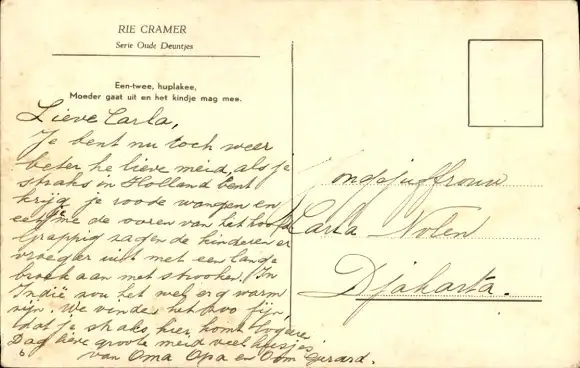 RIE CRAMER
Serie Oude Deuntjes
Een-twee, huplakee,
Moeder gaat uit en het kindje mag mee.
Lieve Carla,
Je bent nu toch weer
beter he lieve meid, als je
straks in Holland bent
krijg je roode wangen en
eet je me de ooren van het hoofd
Grappig zagen de kinderen er
vroeger uit met een lange
broek aan met strooken. In
Indië zou het wel erg warm
zijn. We vinden het zoo fijn,
dat je straks hier komt logeren
Dag lieve groote meid veel kusjes
van Oma Opa en Oom Gerard.
Jongejuffrouw
Carla Nolen
Djakarta.